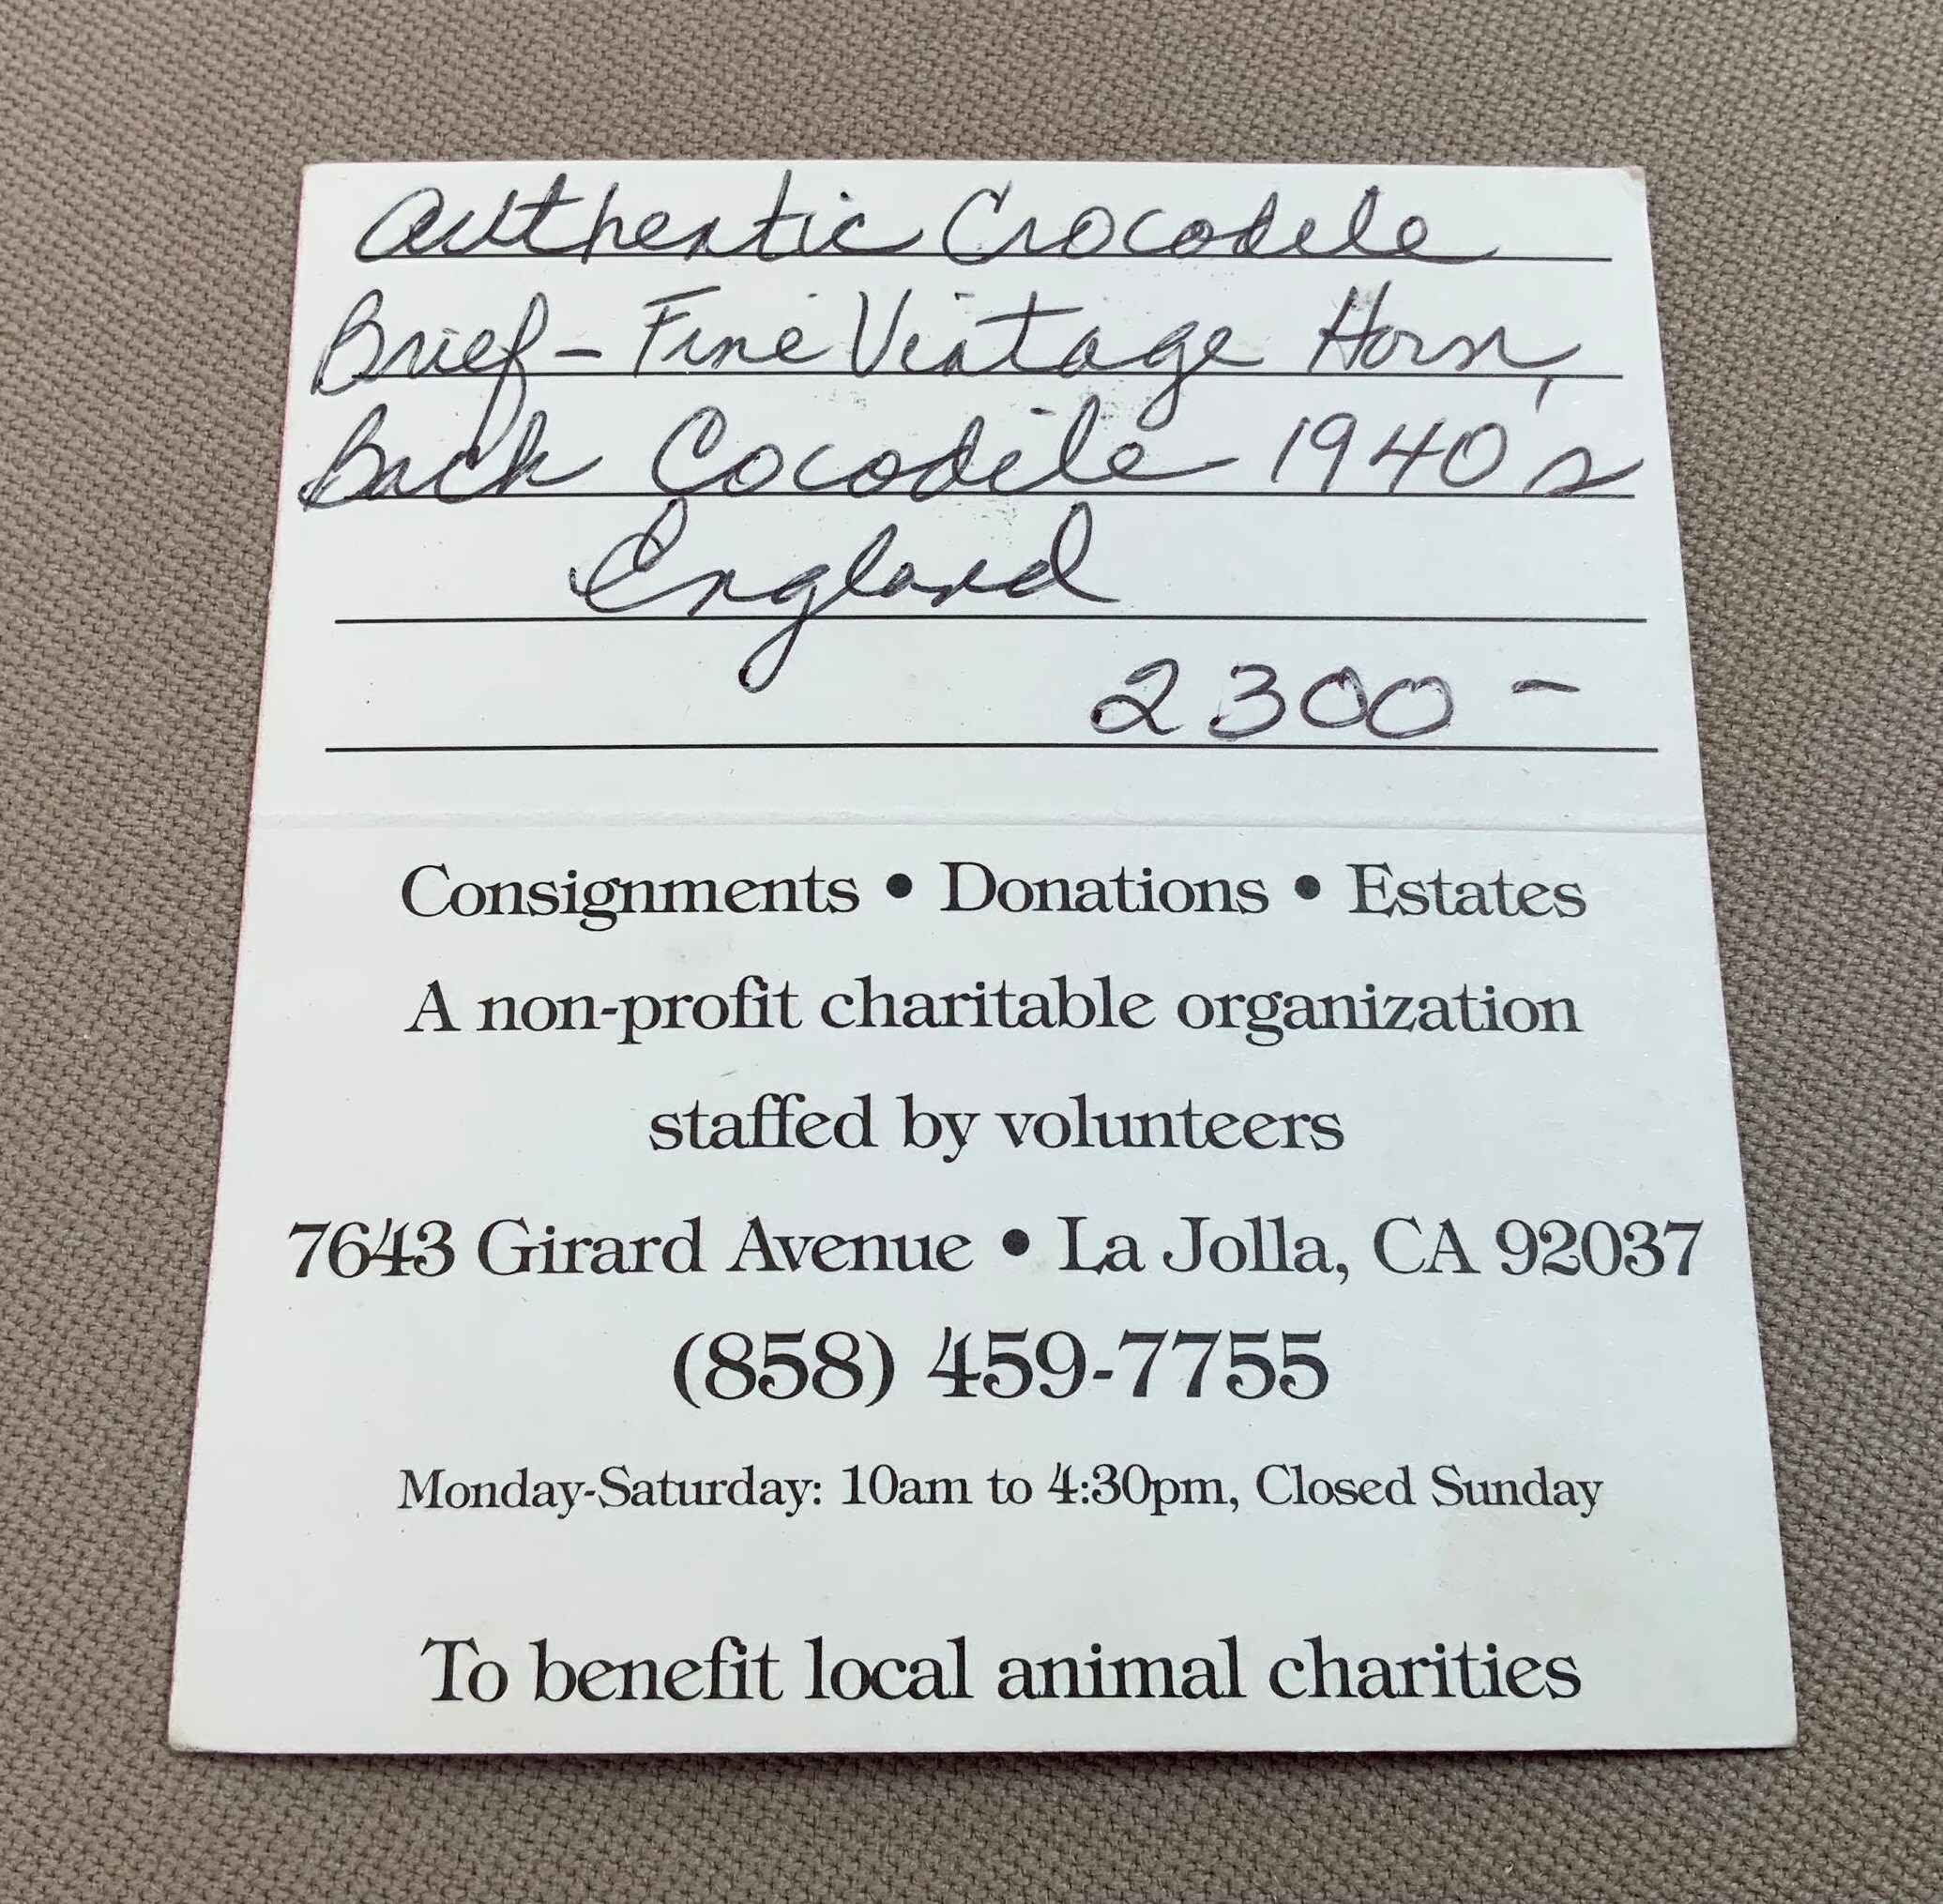 Authentic Crocodile
Brief - Fine Vintage Horn,
Back Cocodile 1940's
England
2300 -
Consignments • Donations • Estates
A non-profit charitable organization
staffed by volunteers
7643 Girard Avenue • La Jolla, CA 92037
(858) 459-7755
Monday-Saturday: 10am to 4:30pm, Closed Sunday
To benefit local animal charities